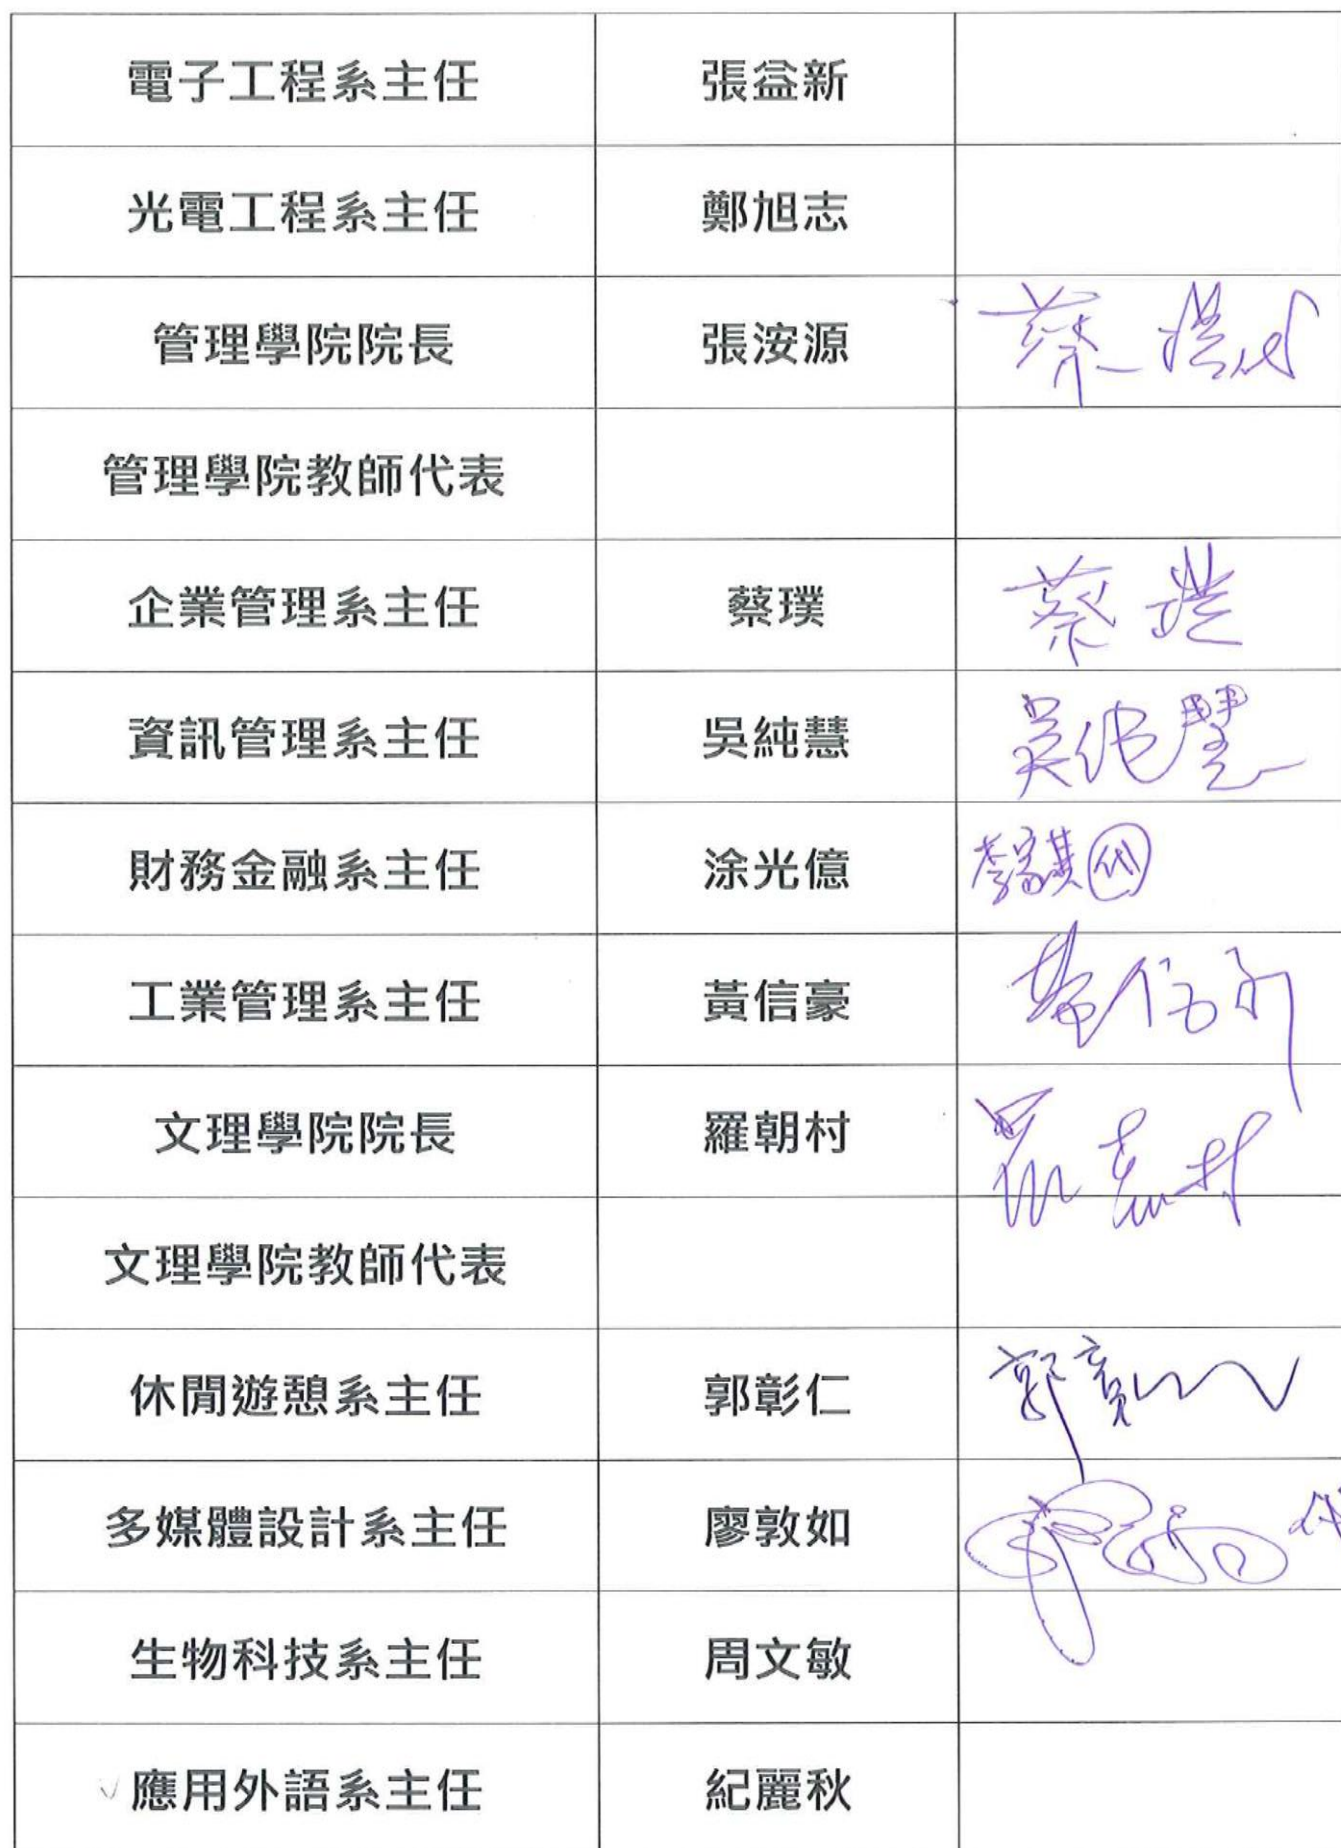 電子工程系主任 張益新
光電工程系主任 鄭旭志
管理學院院長 張洝源 蔡璞代
管理學院教師代表
企業管理系主任 蔡璞 蔡璞
資訊管理系主任 吳純慧 吳純慧
財務金融系主任 涂光億 代
工業管理系主任 黃信豪 黃信豪
文理學院院長 羅朝村 羅朝村
文理學院教師代表
休閒遊憩系主任 郭彰仁 郭彰仁
多媒體設計系主任 廖敦如 代
生物科技系主任 周文敏
應用外語系主任 紀麗秋